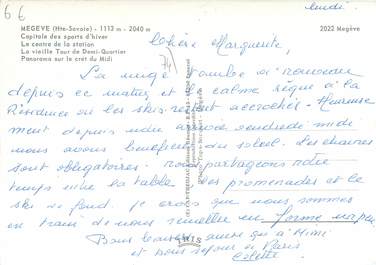 6 6
lundi.
MEGEVE (Hte-Savoie) - 1113 m - 2040 m
Capitale des sports d'hiver
Le centre de la station
La vieille Tour de Demi-Quartier
Panorama sur le crêt du Midi
2022 Megève
Chère Marguerite,
74
La neige tombe à nouveau
depuis ce matin et le calme règne à la
Résidence où les skis restent accrochés. Heureuse
ment depuis notre arrivée vendredi midi
nous avons bénéficié du soleil. Les chaines
sont obligatoires. nous partageons notre
temps entre la table, les promenades et le
ski de fond. je crois que nous sommes
en train de nous remettre en forme
Bons baisers ainsi qu'à Mimi
et bon séjour à Paris
Colette
IRIS